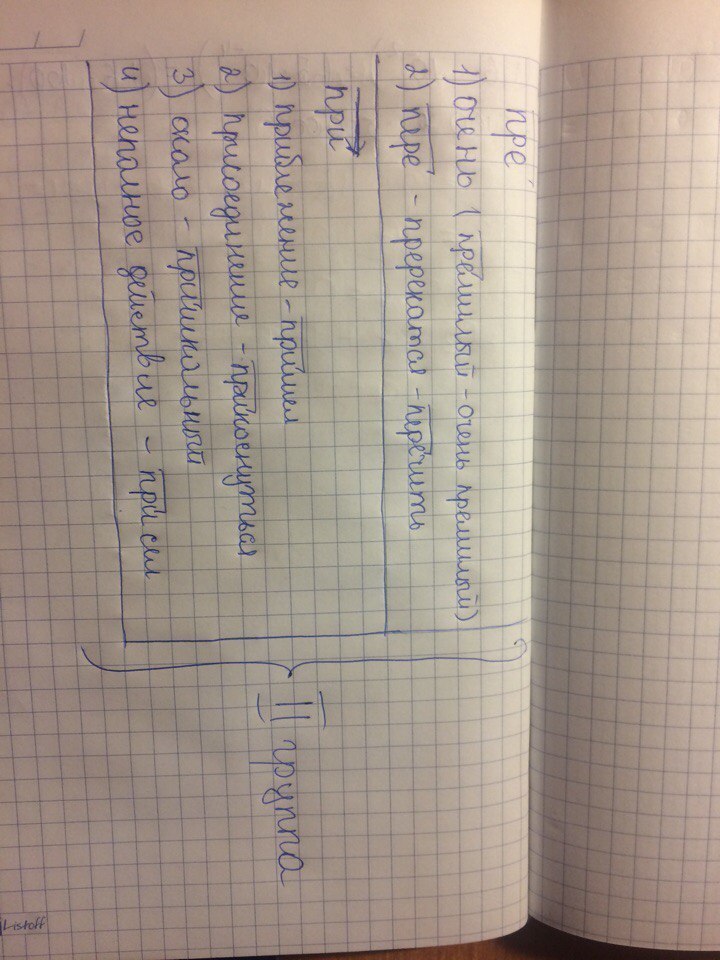 пре
1) очень (премилый - очень премилый)
2) пере - пререкатся - перечить
при
1) приближение - пришел
2) присоединение - прикоснуться
3) около - пришкольный
4) неполное действие - присел
II группа
Listoff